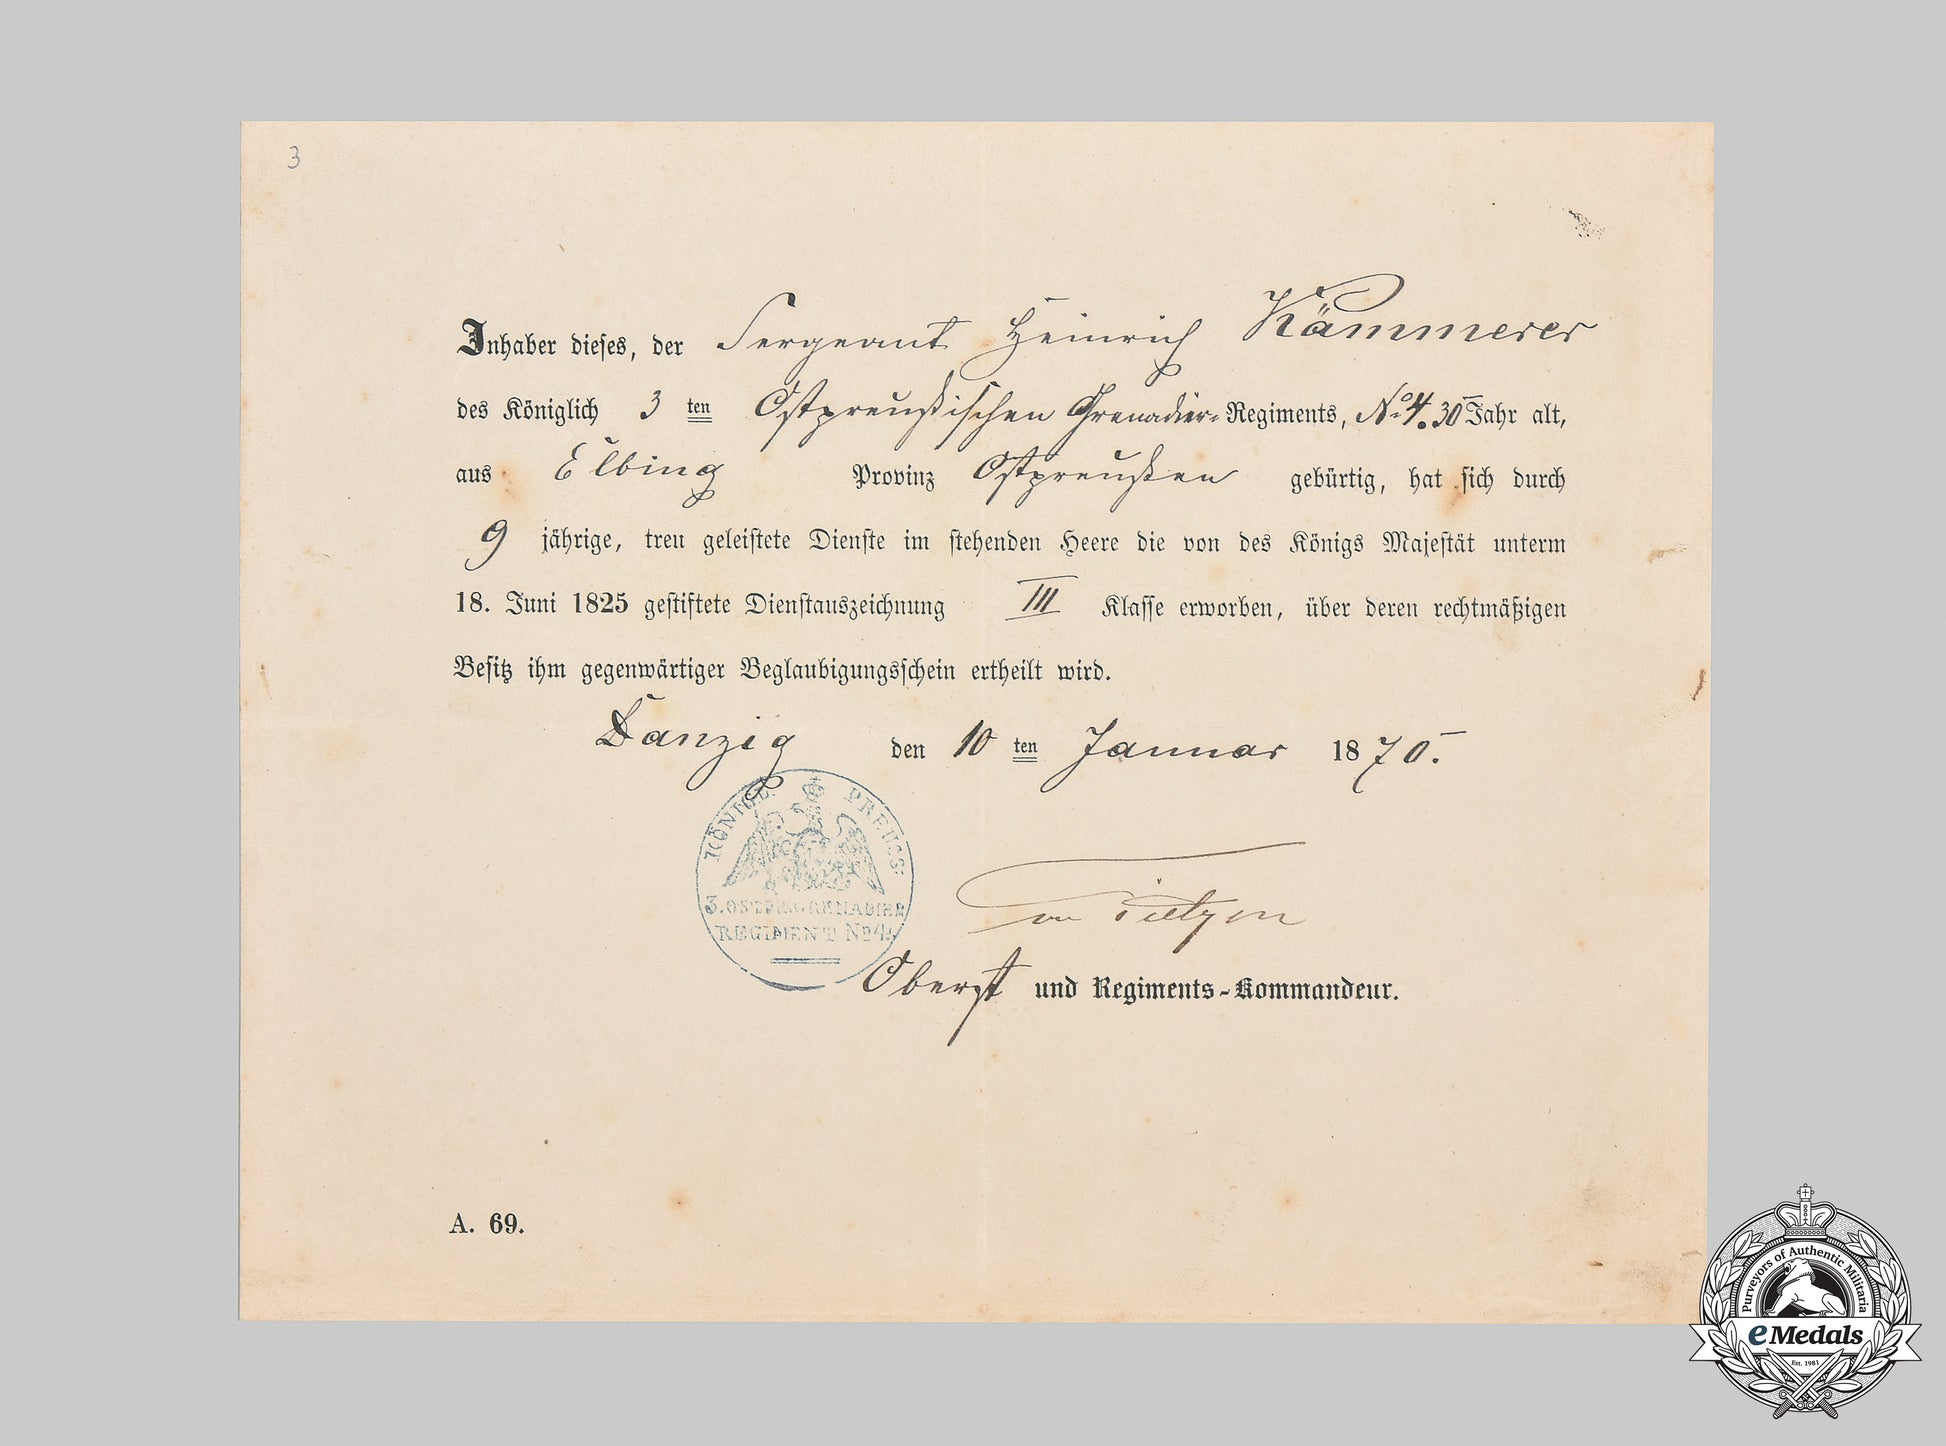 3
Inhaber dieses, der Sergeant Heinrich Kämmerer
des Königlich 3 ten Ostpreußischen Grenadier-Regiments, No 4. 30 Jahr alt,
aus Elbing Provinz Ostpreußen gebürtig, hat sich durch
9 jährige, treu geleistete Dienste im stehenden Heere die von des Königs Majestät unterm
18. Juni 1825 gestiftete Dienstauszeichnung III Klasse erworben, über deren rechtmäßigen
Besitz ihm gegenwärtiger Beglaubigungsschein ertheilt wird.
Danzig den 10 ten Januar 1870.
KÖNIGL. PREUSS.
3. OSTPR. GRENADIER
REGIMENT No 4.
von Tietzen
Oberst und Regiments-Kommandeur.
A. 69.
Purveyors of Authentic Militaria
eMedals
Est. 1983